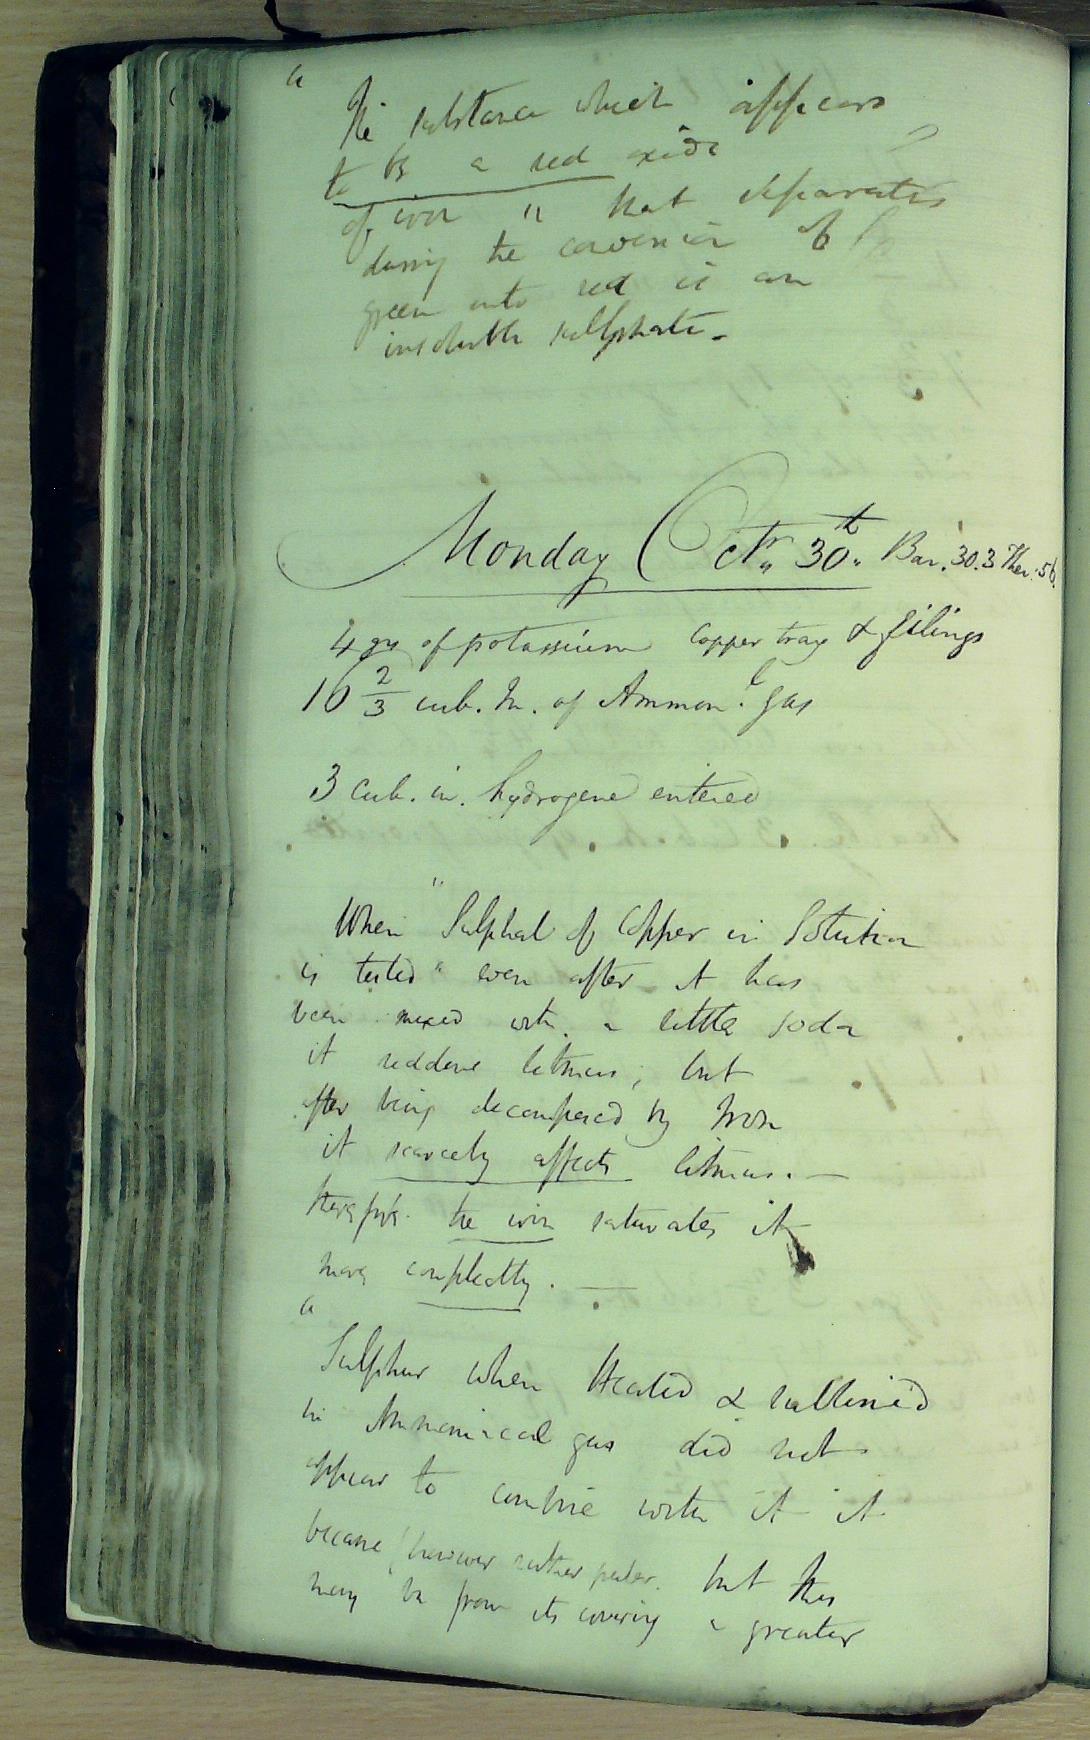 a
The substance which appears
to be a red oxide
of iron " that separates
during the conversion of
green into red is an
insoluble sulphate. -
Monday Octr,, 30th,, Bar. 30.3 Ther: 56.
4 grs of potassium Copper tray & filings
10 2/3 cub. In. of Ammonl. gas
3 Cub. in. hydrogene entered
When " Sulphat of Copper in Solution
is tested " even after it has
been mixed with a little soda
it reddens litmus; but
after being decomposed by Iron
it scarcely affects litmus. —
therefore the iron saturates it
more completely. —
a
Sulphur when Heated & sublimed
in Ammoniacal gas did not
appear to combine with it it
became however rather paler. but this
may be from its covering a greater